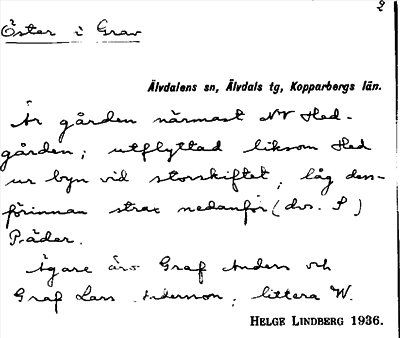 2
Öster i Grav
Älvdalens sn, Älvdals tg, Kopparbergs län.
Är gården närmast NV Hed-
gården; utflyttad liksom Hed
ur byn vid storskiftet, låg den-
förinnan strax nedanför (dvs. S)
Präder.
Ägare äro Graf Anders och
Graf Lars Anderson; littera W.
HELGE LINDBERG 1936.